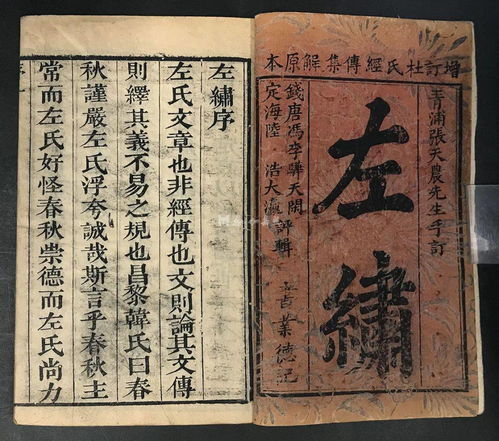 增訂杜氏經傳集解原本
青浦張天農先生手訂
左繡
錢唐馮李驊天閑
定海陸浩大瀛
評輯
書業德記
左繡序
左氏文章也非經傳也文則論其文傳
則繹其義不易之規也昌黎韓氏曰春
秋謹嚴左氏浮夸誠哉斯言乎春秋主
常而左氏好怪春秋崇德而左氏尚力